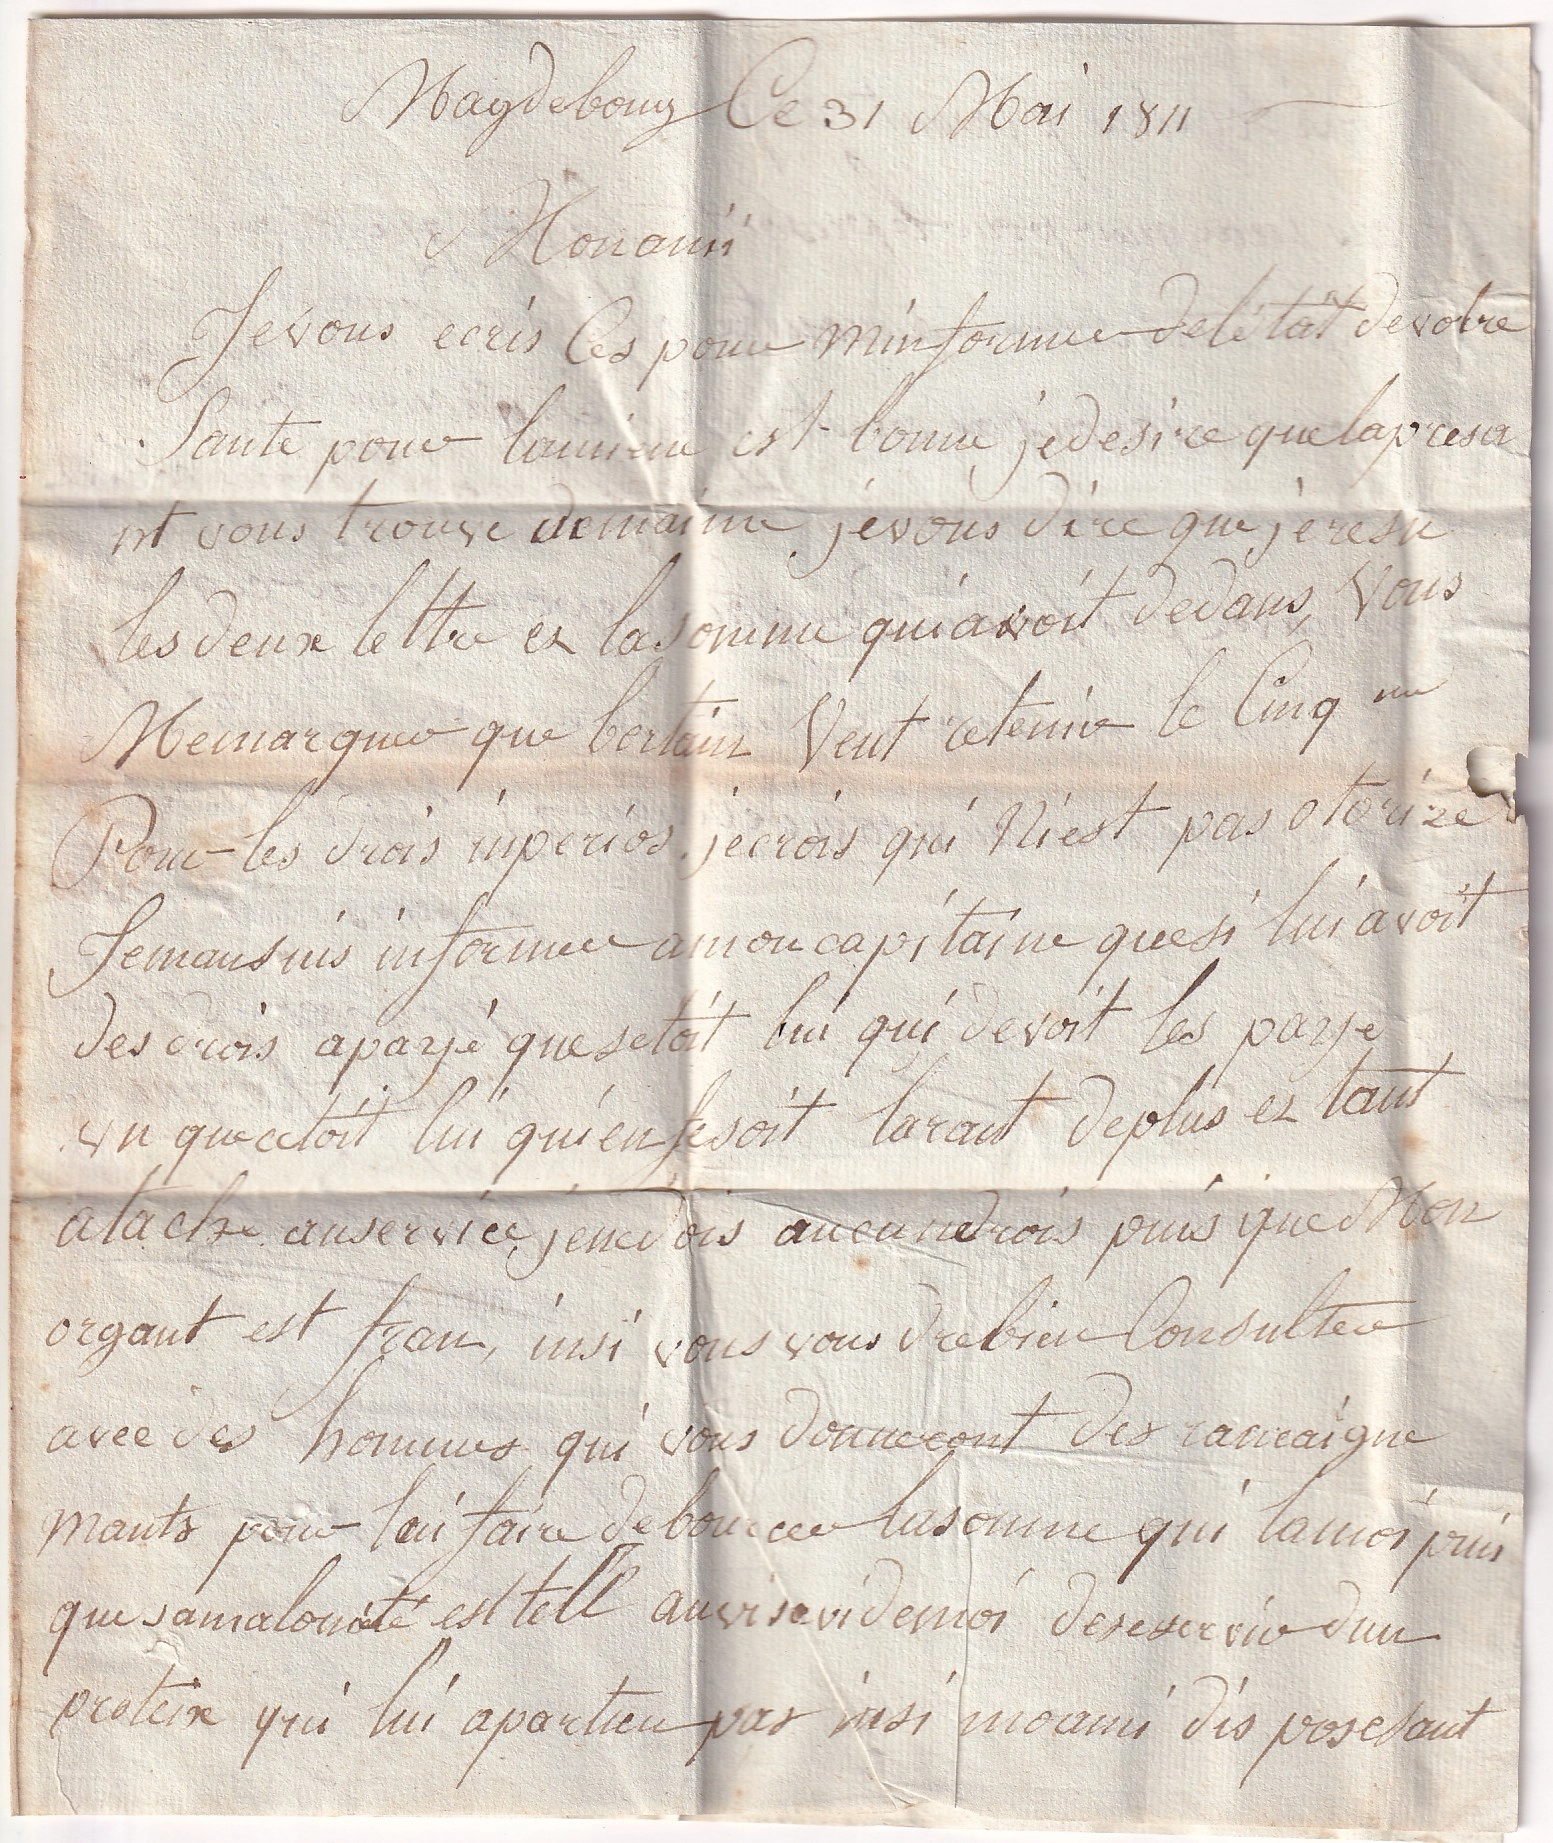 Magdebourg Ce 31 Mai 1811
Monami
Jevous ecris Ces pour minformer deletat devotre
Sante pour lamiene est bonne jedesire quelapresa
nt vous trouve demaime jevous dire que jeresu
les deux lettre et lasomme quiavoit dedans, Vous
Memarquer que bertain Veut retenir le Cinq me
Pour les drois inperios jecrois qui Niest pas otorize
Jemansuis informer amoncapitaine quesi lui avoit
des drois apayé quesetoit lui qui devoit les paye
vu que cetoit lui quien fesoit larant deplus et tant
atache auservice jenedois aucundrois puis que Mon
argant est fran, insi vous vous drebien Consulter
avec des hommes qui vous donneront des ranraigne
mants pour lui faire debourcer lasomme qui lamoi puis
que samalonete est tell auvisavidemoi deseservir dun
protexe qui lui apartien pas insi moami dis posetant